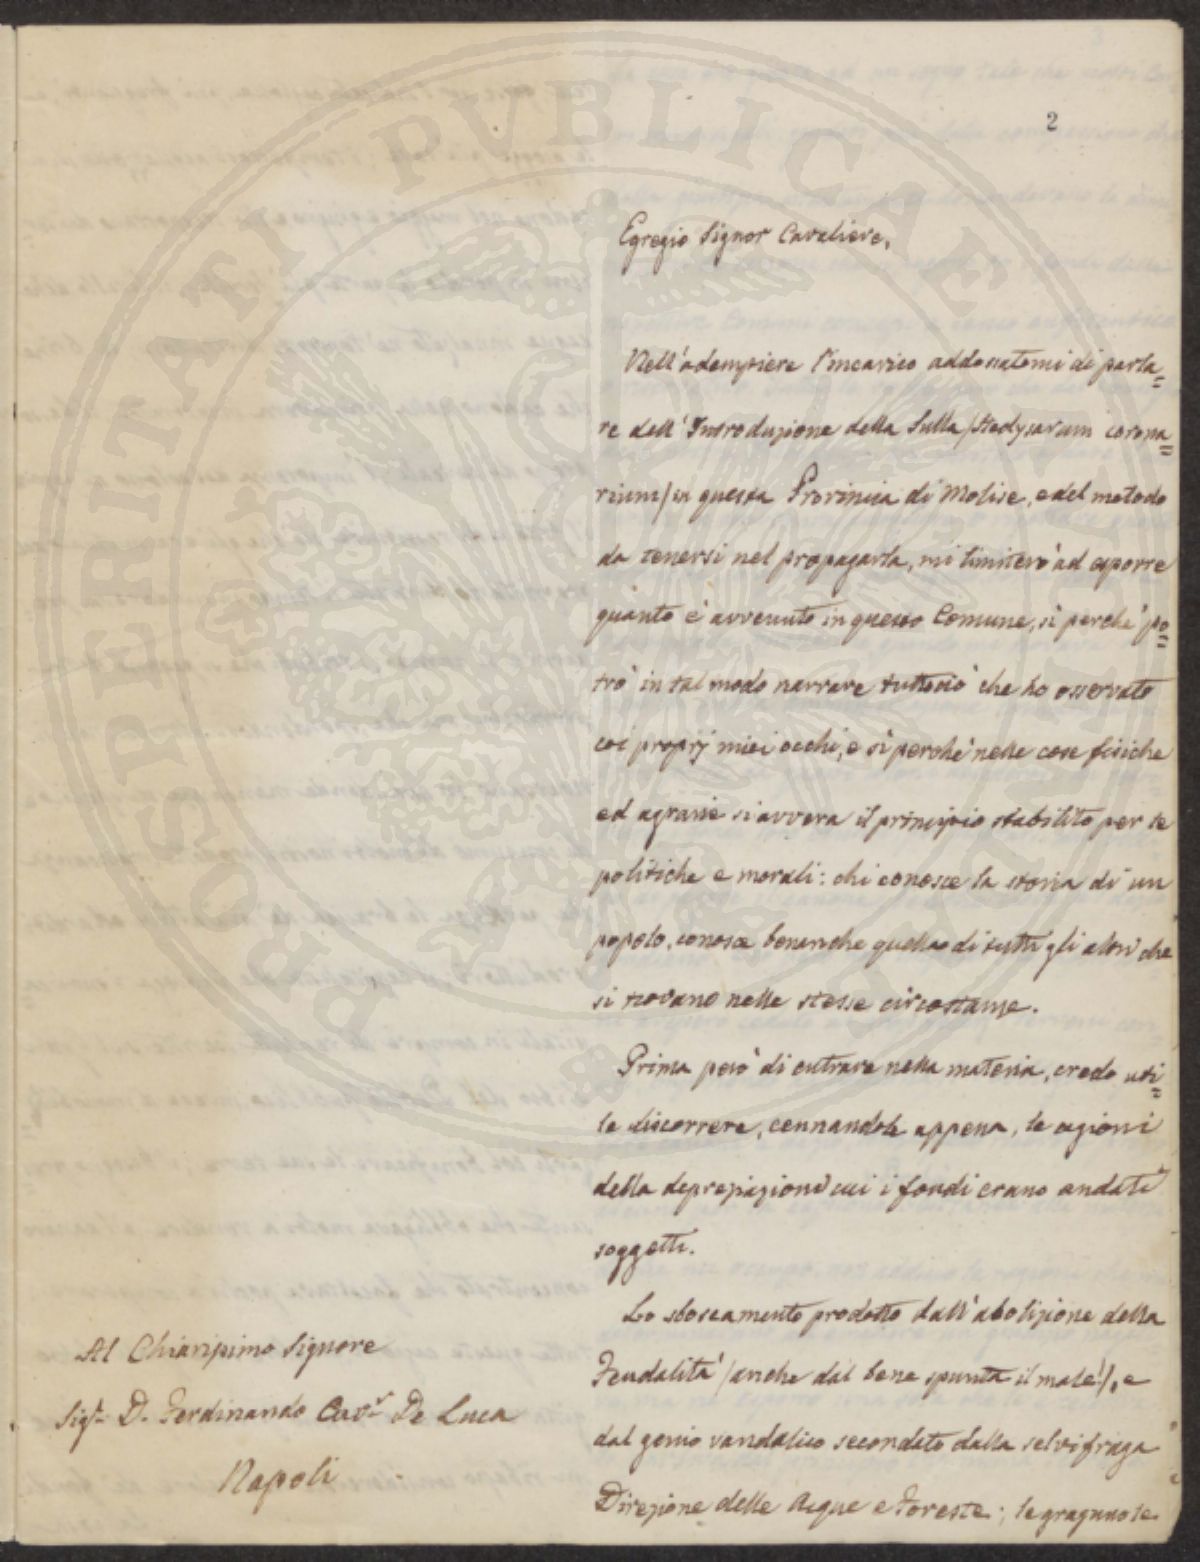 2
Egregio Signor Cavaliere,
Nell'adempiere l'incarico addossatomi di parla=
re dell'Introduzione della Sulla /Hedysarum corona=
rium/ in questa Provincia di Molise, e del metodo
da tenersi nel propagarla, mi limiterò ad esporre
quanto è avvenuto in questo Comune, sì perchè po=
trò in tal modo narrare tuttociò che ho osservato
coi proprj miei occhi, e sì perchè nelle cose fisiche
ed agrarie si avvera il principio stabilito per le
politiche e morali: chi conosce la storia di un
popolo, conosce benanche quella di tutti gli altri che
si trovano nelle stesse circostanze.
Prima però di entrare nella materia, credo uti=
le discorrere, cennandole appena, le cagioni
della depreziazione cui i fondi erano andati
soggetti.
Lo sboscamento prodotto dall'abolizione della
Feudalità /anche dal bene spunta il male!/, e
dal genio vandalico secondato dalla selvifraga
Direzione delle Acque e Foreste; le gragnuole
Al Chiarissimo Signore
Sigr. D. Ferdinando Cavr. De Luca
Napoli
PROSPERITATI PVBLICAE